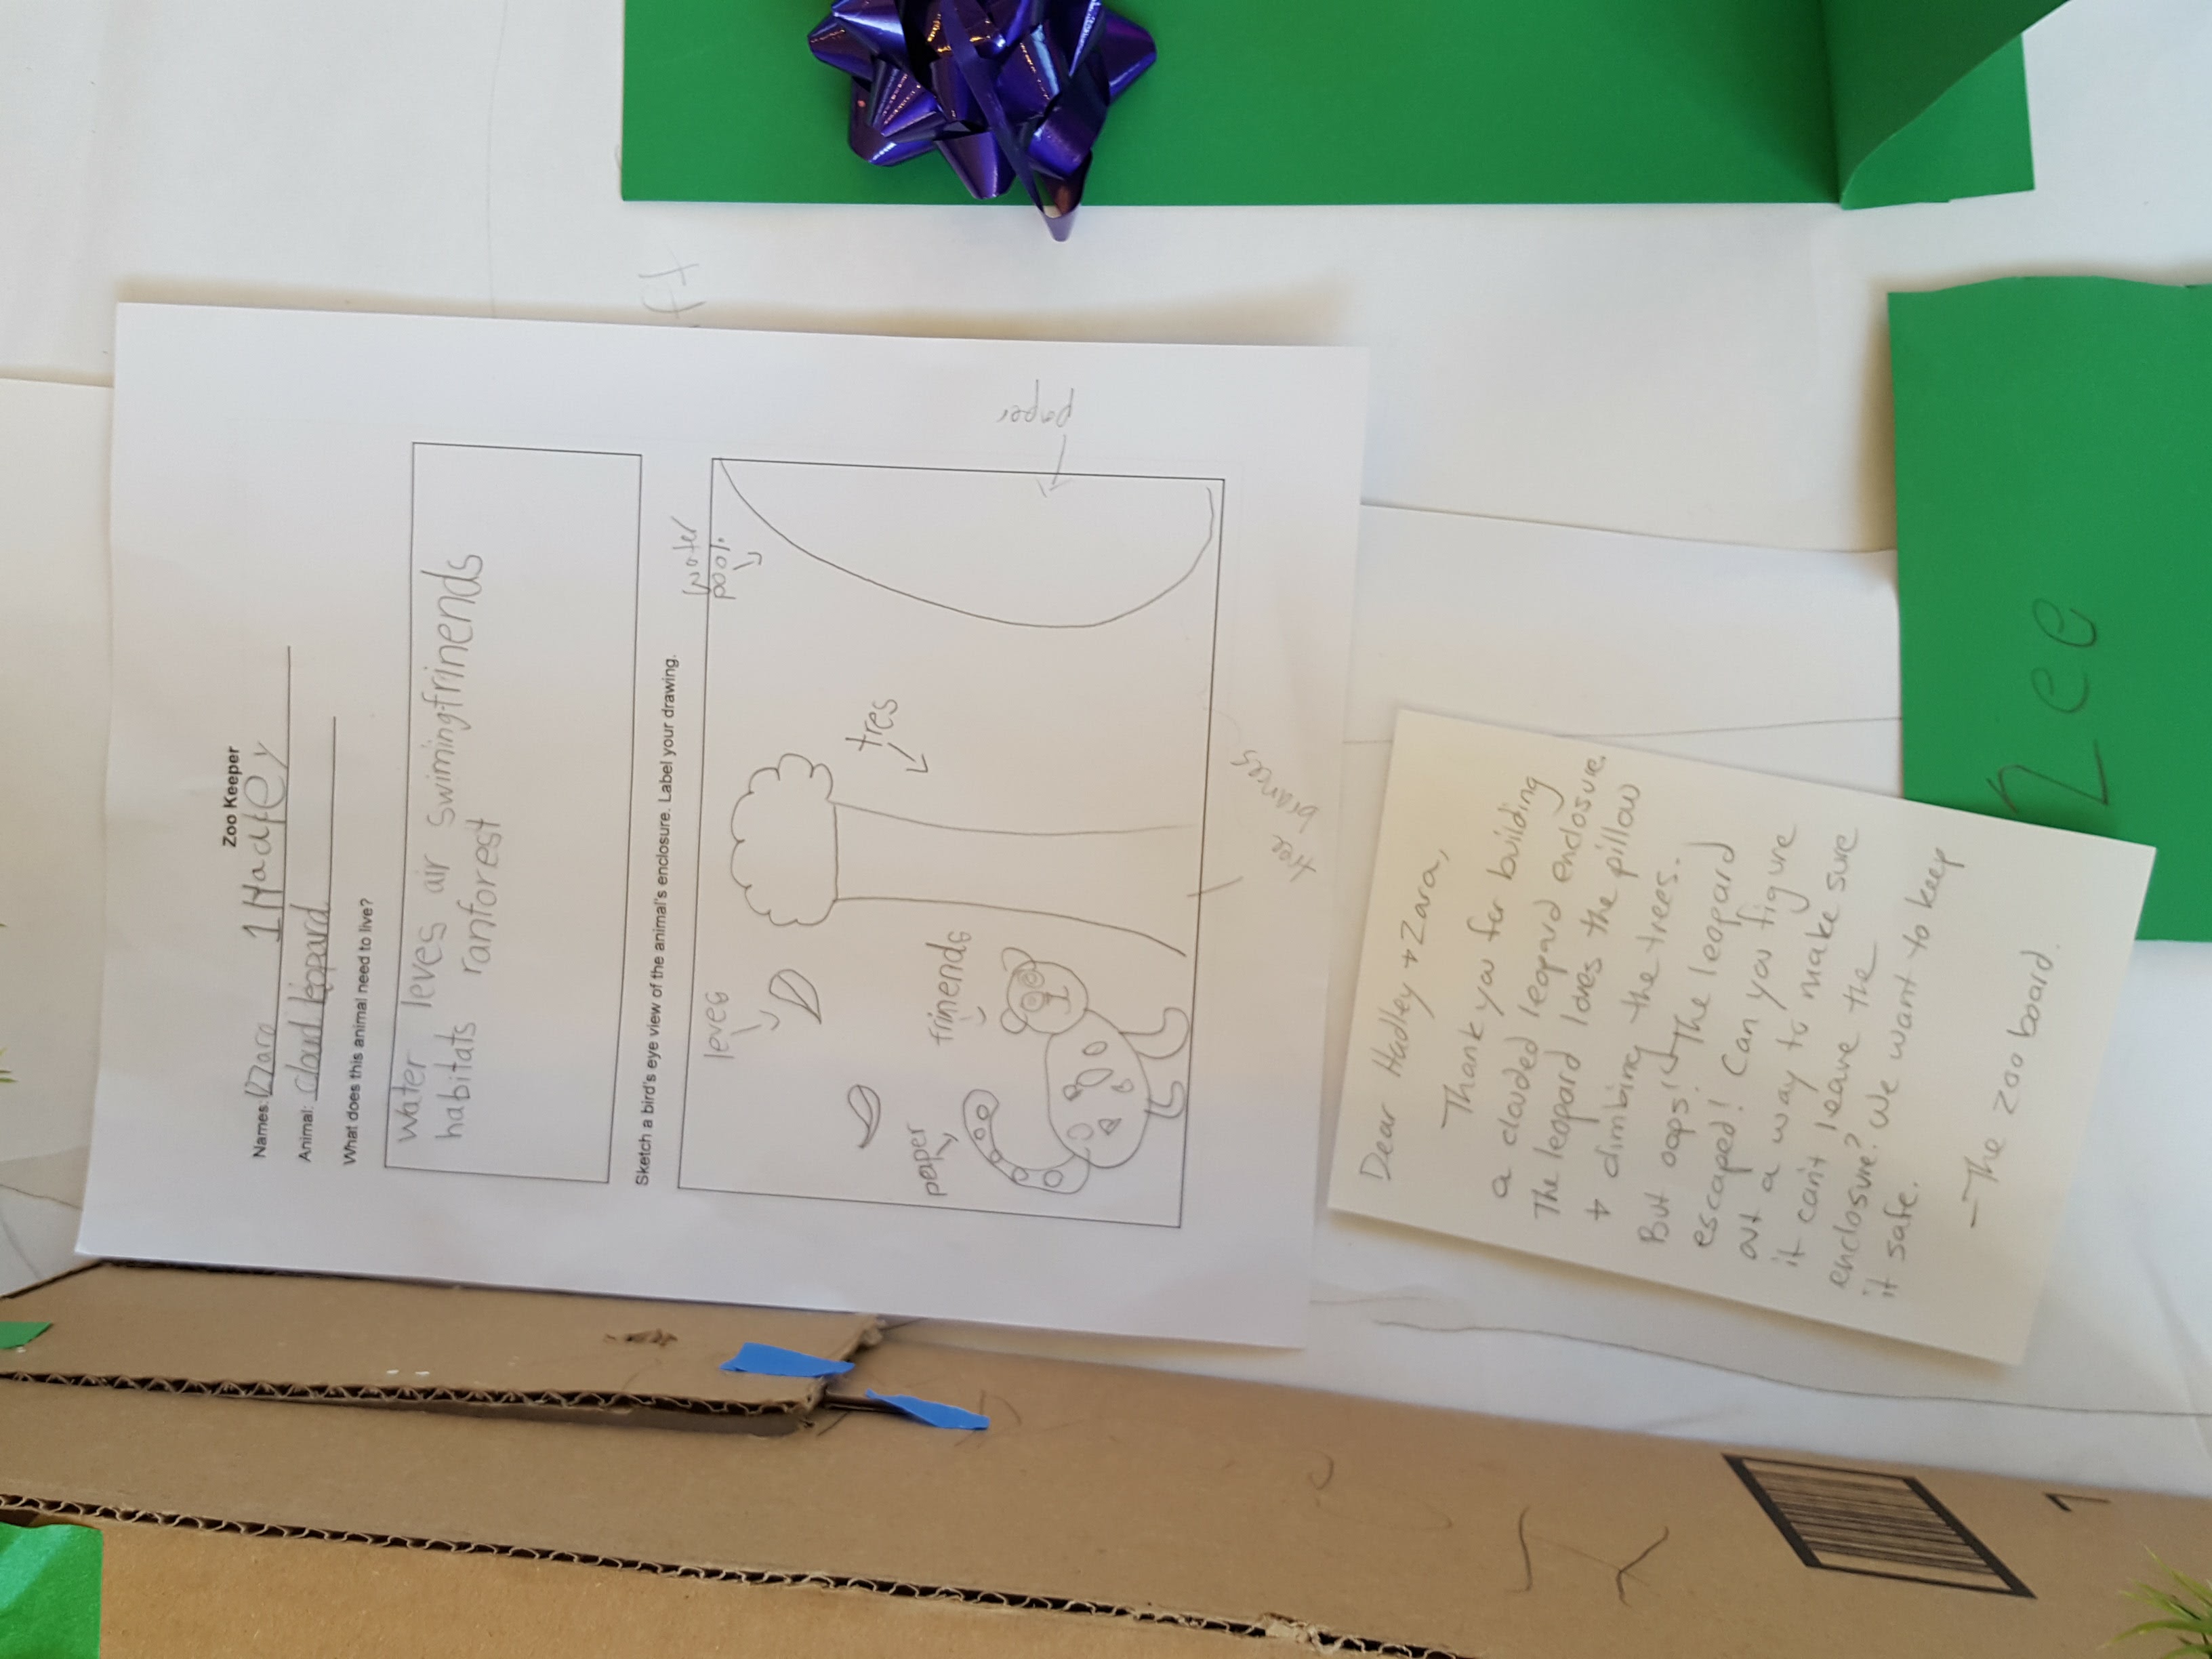 Zoo Keeper
Names: Zara 1 Hadley
Animal: cloud leopard
What does this animal need to live?
water leves air swiming frinends
habitats ranforest
Sketch a bird's eye view of the animal's enclosure. Label your drawing.
water
pool
leves
tres
paper
frinends
paper
tree
brances
ft
Dear Hadley + Zara,
Thank you for building
a clouded leopard enclosure.
The leopard loves the pillow
+ climbing the trees.
But oops! The leopard
escaped! Can you figure
out a way to make sure
it can't leave the
enclosure? We want to keep
it safe.
- The zoo board.
Zee